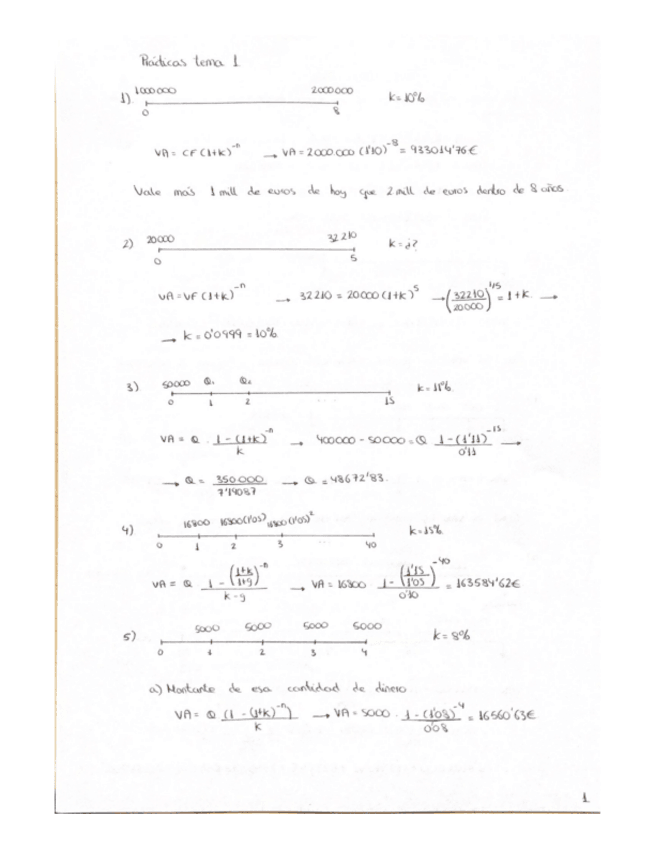 Prácticas tema 1
1) 1000000 2000000 k=10%
0 8
VA = CF (1+k)^-n → VA = 2000000 (1'10)^-8 = 933014'76€
Vale más 1 mill de euros de hoy que 2 mill de euros dentro de 8 años.
2) 20000 32210 k=¿?
0 5
VA=VF (1+k)^-n → 32210 = 20000 (1+k)^5 → (32210/20000)^1/5 = 1+k →
→ k = 0'0999 = 10%
3) 50000 Q₁ Q₂ k=11%
0 1 2 ... 15
VA = Q · (1-(1+k)^-n)/k → 400000 - 50000 = Q (1-(1'11)^-15)/0'11 →
→ Q = 350000/7'19087 → Q = 48672'83.
4) 16800 16800(1'05) 16800(1'05)² k=15%
0 1 2 3 ... 40
VA = Q (1-((1+k)/(1+g))^-n)/(k-g) → VA = 16800 (1-(1'15/1'05)^-40)/0'10 = 163584'62€
5) 5000 5000 5000 5000 k=8%
0 1 2 3 4
a) Montante de esa cantidad de dinero
VA = Q (1-(1+k)^-n)/k → VA = 5000 · (1-(1'08)^-4)/0'08 = 16560'63€
1